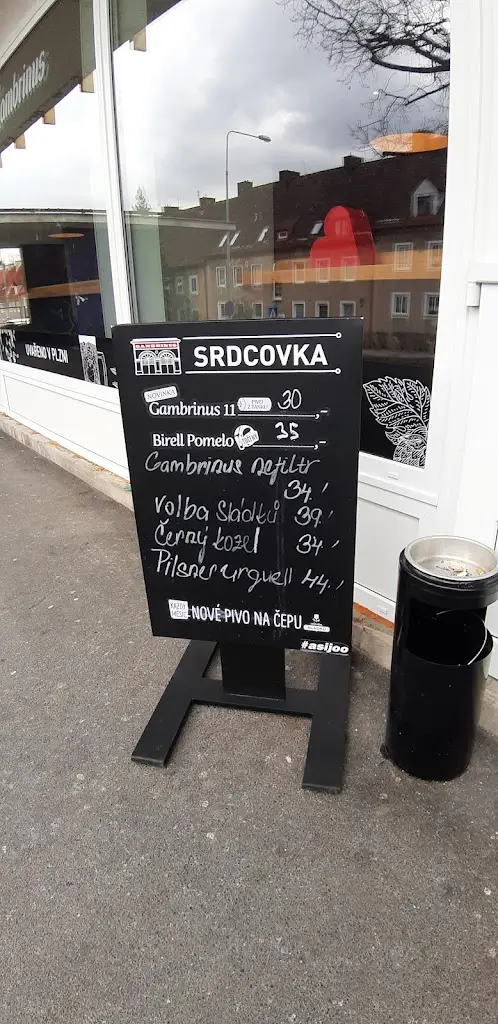 Gambrinus
UVAŘENO V PLZNI
GAMBRINUS
SRDCOVKA
NOVINKA
Gambrinus 11 PIVO Z TANKU 30 ,-
Birell Pomelo 35 ,-
Gambrinus nefiltr
34,'
Volba Sládků 39,'
Černý kozel 34,'
Pilsner urquell 44,'
KAŽDÝ MĚSÍC NOVÉ PIVO NA ČEPU
#asijoo